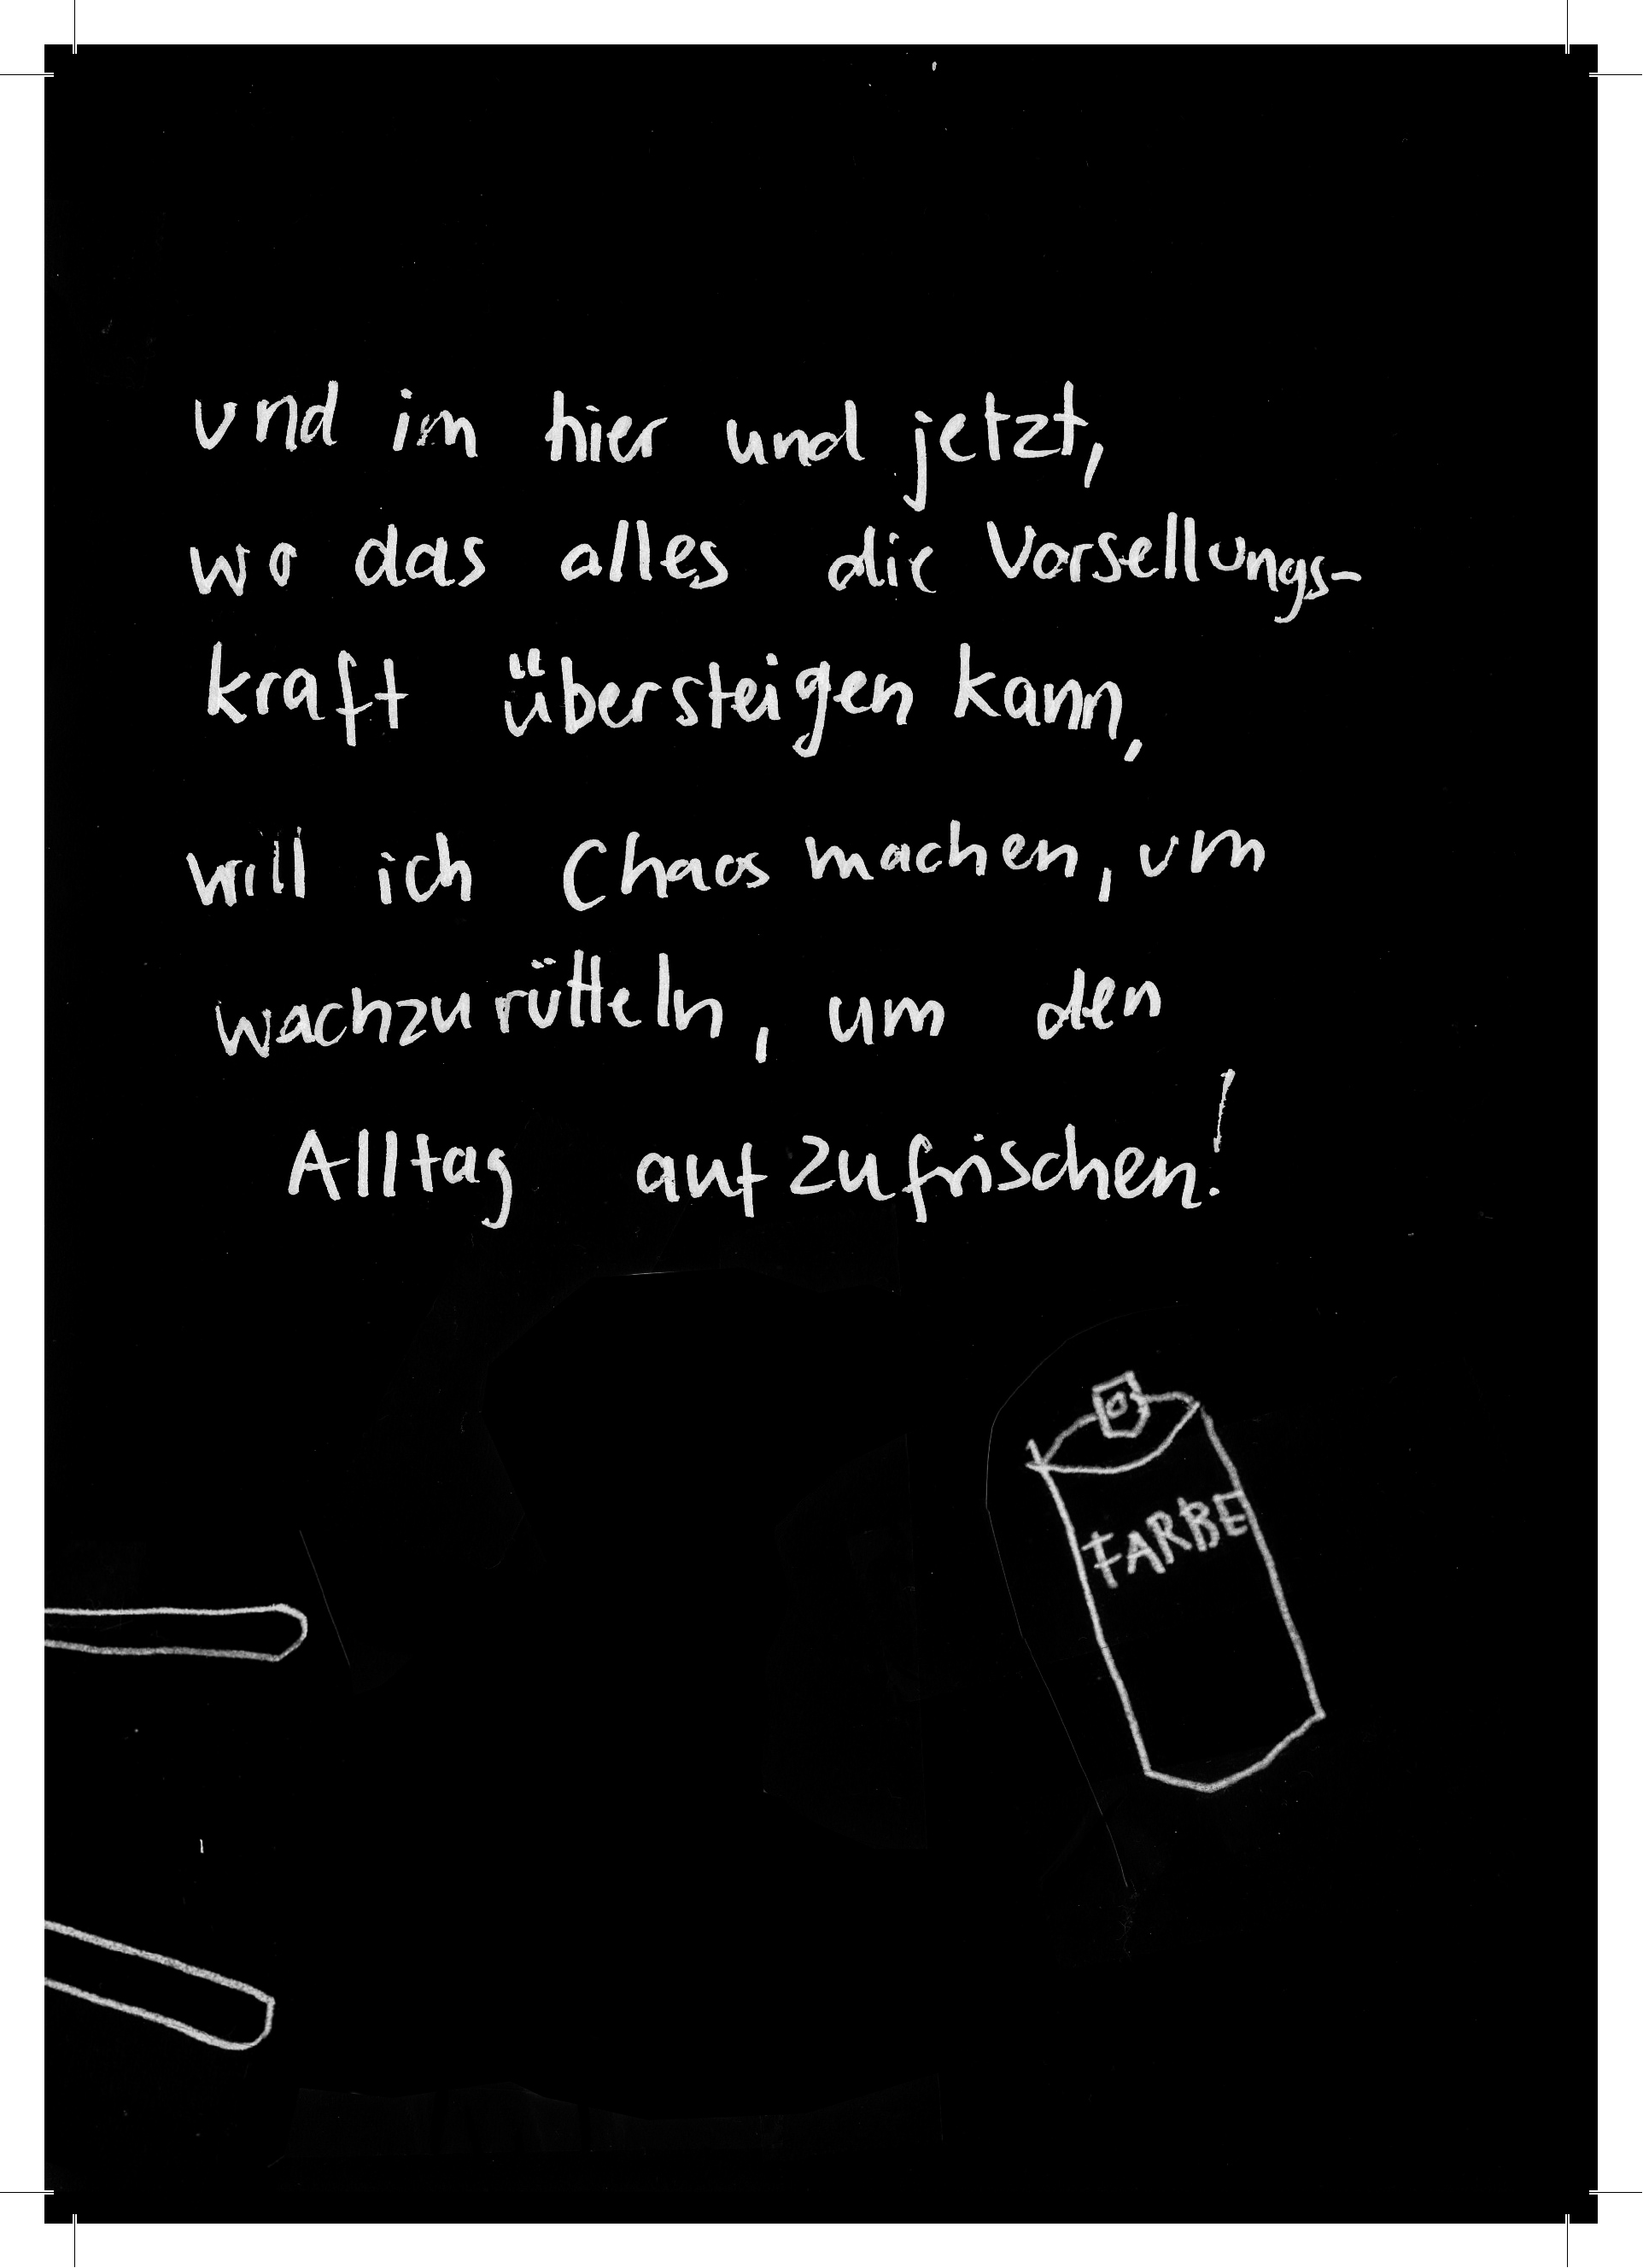 und im hier und jetzt,
wo das alles die Vorsellungs-
kraft übersteigen kann,
will ich Chaos machen, um
wachzurütteln, um den
Alltag aufzufrischen!
FARBE